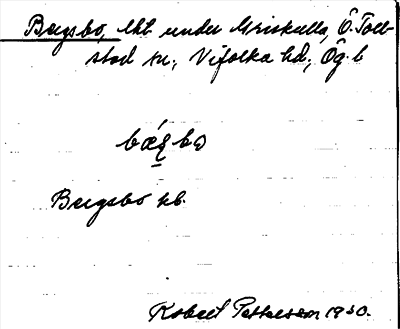 Bergsbo, lht under Mriskulla, Ö. Toll-
stad sn., Vifolka hd., Ög. l.
bǽʀbo
Bergsbo hb.
Robert Pettersson 1930.